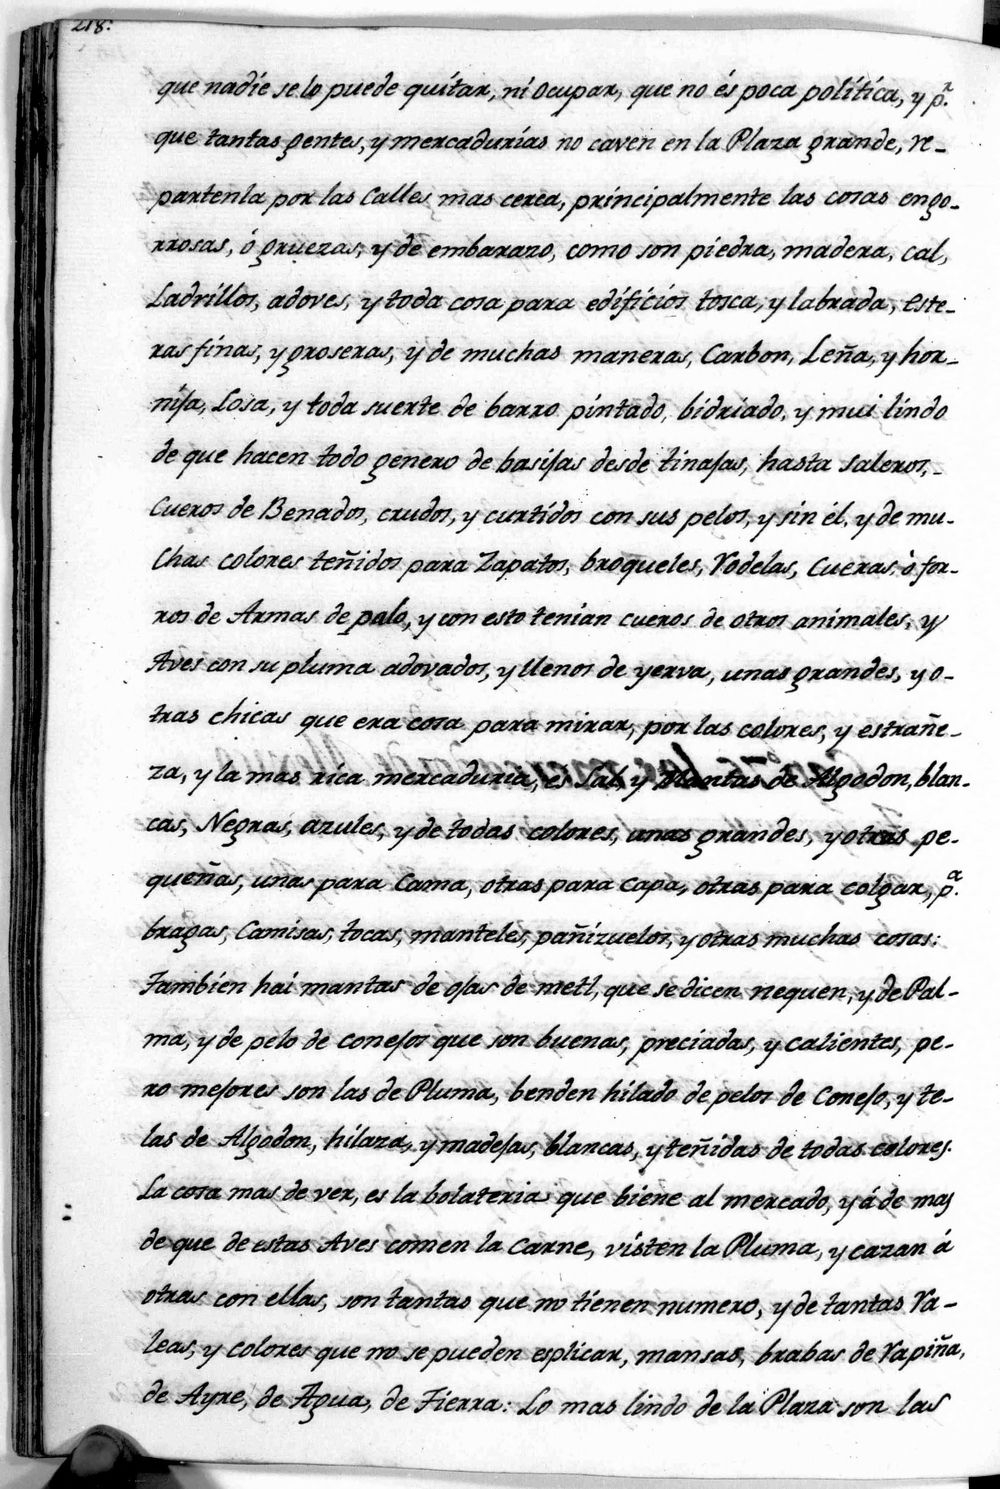 218.
que nadie se lo puede quitar, ni ocupar, que no és poca política, y p.r
que tantas gentes, y mercadurías no caven en la Plaza grande, re-
partenla por las Calles mas cerca, principalmente las cosas engo-
rrosas, ó gruezas, y de embarazo, como son piedra, madera, cal,
Ladrillos, adoves, y toda cosa para edificios tosca, y labrada, este-
ras finas, y groseras, y de muchas maneras, Carbon, Leña, y hor-
nija, Losa, y toda suerte de barro pintado, bidriado, y mui lindo
de que hacen todo genero de basijas desde tinajas, hasta saleros,
Cueros de Benados, crudos, y curtidos con sus pelos, y sin él, y de mu-
chas colores teñidos para Zapatos, broqueles, Rodelas, Cueras, ò for-
ros de Armas de palo, y con esto tenian cueros de otros animales, y
Aves con su pluma adovados, y llenos de yerva, unas grandes, y o-
tras chicas que era cosa para mirar, por las colores, y estrañe-
za, y la mas rica mercaduria, es Sal, y Mantas de Algodon, blan-
cas, Negras, azules, y de todas colores, unas grandes, y otras pe-
queñas, unas para Cama, otras para capa, otras para colgar, p.a
bragas, Camisas, tocas, manteles, pañizuelos, y otras muchas cosas:
Tambien hai mantas de ojas de metl, que se dicen nequen, y de Pal-
ma, y de pelo de conejos que son buenas, preciadas, y calientes, pe-
ro mejores son las de Pluma, benden hilado de pelos de Conejo, y te-
las de Algodon, hilaza, y madejas, blancas, y teñidas de todas colores.
La cosa mas de ver, es la bolateria que biene al mercado, y á de mas
de que de estas Aves comen la Carne, visten la Pluma, y cazan á
otras con ellas, son tantas que no tienen numero, y de tantas Ra-
leas, y colores que no se pueden esplicar, mansas, brabas de Rapiña,
de Ayre, de Agua, de Tierra: Lo mas lindo de la Plaza son las